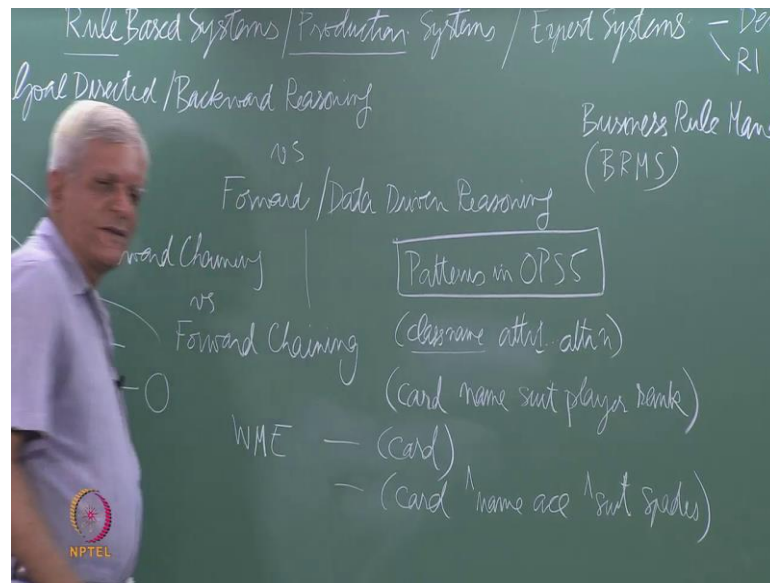 Rule Based Systems / Production Systems / Expert Systems - De
R1
Goal Directed / Backward Reasoning
vs
Forward / Data Driven Reasoning
Business Rule Man
(BRMS)
ward Chaining
vs
Forward Chaining
Patterns in OPS5
(classname attr1.. attrn)
(card name suit player rank)
WME - (card)
- (card ^name ace ^suit spades)
NPTEL